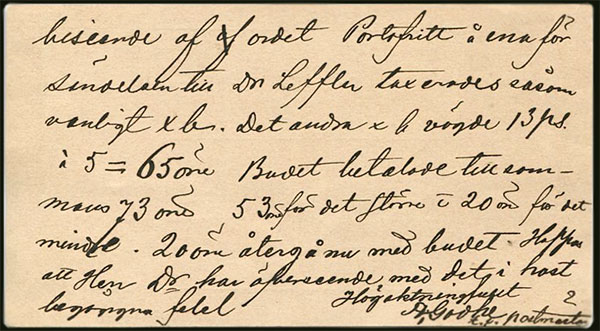 biseende af ordet Portofritt å ena för
sändelsen till Dr Leffler taxerades såsom
vanligt x b. Det andra x b vägde 13 ps.
à 5 = 65 öre Budet betalade tillsam-
mans 73 öre 53 öre för det större o 20 öre för det
mindre. 20 öre återgå nu med budet. Hoppas
att Herr Dr har öfverseende med det i hast
begångna felet Högaktningsfullt
postmästare